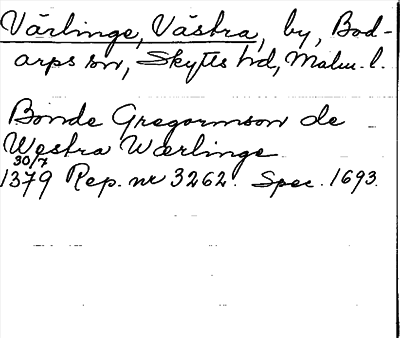 Värlinge, Västra, by, Bod-
arps sn, Skytts hd, Malm. l.
Bonde Gregormson de
Westra Wærlinge
30/7
1379 Rep. nr 3262. Spec. 1693.